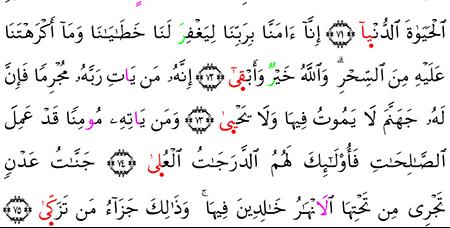 الْحَيَوٰةَ ٱلدُّنْيَآ ﴿٧١﴾ إِنَّآ ءَامَنَّا بِرَبِّنَا لِيَغْفِرَ لَنَا خَطَـٰيَـٰنَا وَمَآ أَكْرَهْتَنَا
عَلَيْهِ مِنَ ٱلسِّحْرِۗ وَٱللَّهُ خَيْرٌ وَأَبْقَىٰٓ ﴿٧٢﴾ إِنَّهُۥ مَن يَاتِ رَبَّهُۥ مُجْرِمًا فَإِنَّ
لَهُۥ جَهَنَّمَ لَا يَمُوتُ فِيهَا وَلَا يَحْيَىٰ ﴿٧٣﴾ وَمَن يَاتِهِۦ مُومِنًا قَدْ عَمِلَ
ٱلصَّـٰلِحَـٰتِ فَأُوْلَـٰٓئِكَ لَهُمُ ٱلدَّرَجَـٰتُ ٱلْعُلَىٰ ﴿٧٤﴾ جَنَّـٰتُ عَدْنٍ
تَجْرِى مِن تَحْتِهَا ٱلَانْهَـٰرُ خَـٰلِدِينَ فِيهَاۚ وَذَٰلِكَ جَزَآءُ مَن تَزَكَّىٰ ﴿٧٥﴾